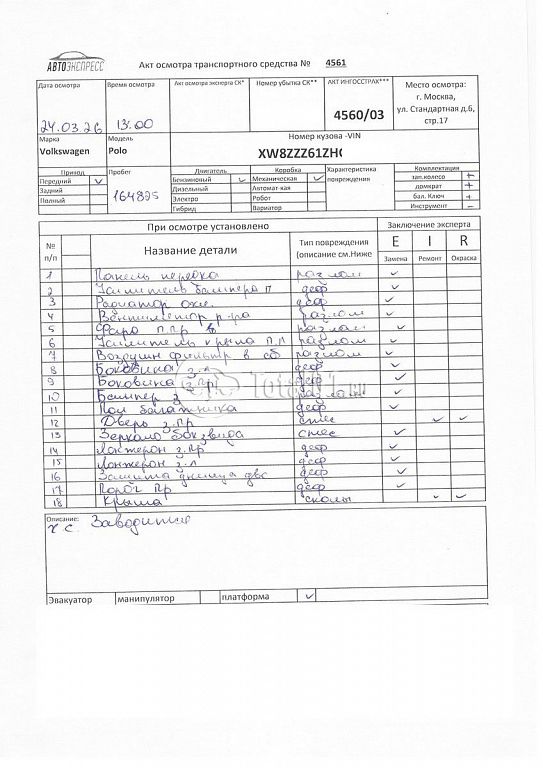 АВТОЭКСПРЕСС
Акт осмотра транспортного средства № 4561
Дата осмотра
24.03.26
Время осмотра
13:00
Акт осмотра эксперта СК*
Номер убытка СК**
АКТ ИНГОССТРАХ***
4560/03
Место осмотра:
г. Москва,
ул. Стандартная д.6,
стр.17
Марка
Volkswagen
Модель
Polo
Номер кузова -VIN
XW8ZZZ61ZH
Привод
Передний ✓
Задний
Полный
Пробег
164825
Двигатель
Бензиновый ✓
Дизельный
Электро
Гибрид
Коробка
Механическая ✓
Автомат-кая
Робот
Вариатор
Характеристика
повреждения
Комплектация
зап.колесо +
домкрат +
бал. Ключ +
Инструмент -
При осмотре установлено
Заключение эксперта
№ п/п
Название детали
Тип повреждения
(описание см.Ниже
E I R
Замена Ремонт Окраска
1 Панель передка разлом ✓
2 Усилитель бампера п деф ✓
3 Радиатор охл. деф ✓
4 Вентилятор р-ра разлом ✓
5 Фара п.пр разлом ✓
6 Усилитель крыла п.л разлом ✓
7 Воздушн фильтр в сб разлом ✓
8 Боковина з.л деф ✓
9 Боковина з.пр деф ✓
10 Бампер з разлом ✓
11 Пол багажника деф ✓
12 Дверь з.пр ✓ ✓
13 Зеркало ✓
14 Лонжерон з.пр деф ✓
15 Лонжерон з.л деф ✓
16 Защита днища двс деф ✓
17 Порог пр деф ✓
18 Крыша сколы ✓ ✓
Описание:
т с. Заводится
Эвакуатор манипулятор платформа ✓